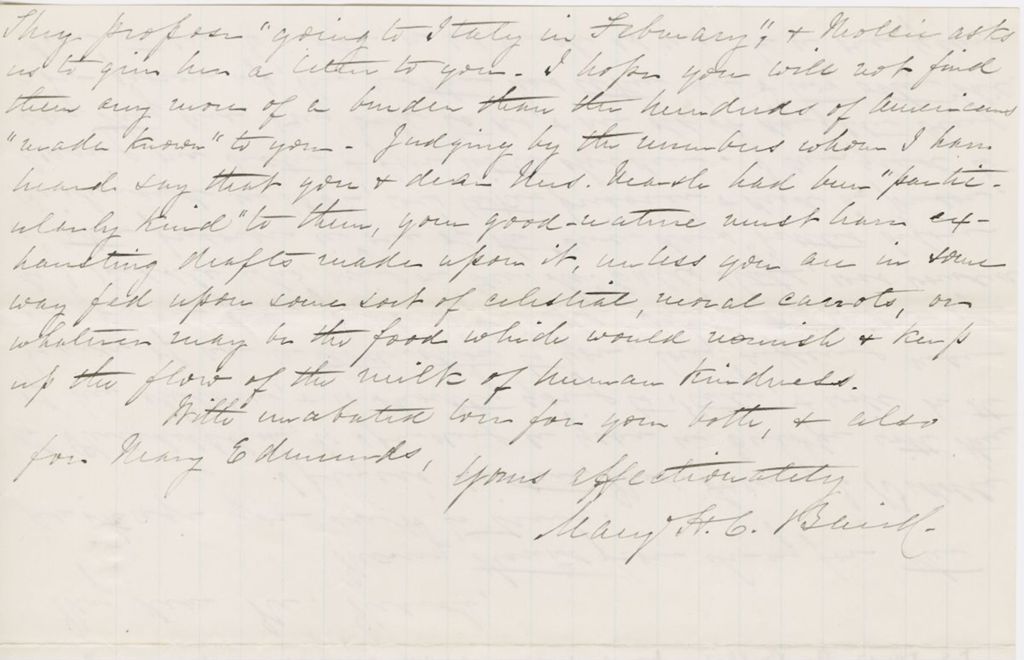 They propose "going to Italy in February", & Mollie asks
us to give her a letter to you - I hope you will not find
them any more of a burden than the hundreds of Americans
"made known" to you - Judging by the numbers whom I have
heard say that you & dear Mrs. Marsh had been "partic-
ularly kind" to them, your good-nature must have ex-
hausting drafts made upon it, unless you are in some
way fed upon some sort of celestial, moral carrots, or
whatever may be the food which would nourish & keep
up the flow of the milk of human kindness.
With unabated love for you both, & also
for Mary Edmunds,
Yours affectionately
Mary H. C. Baird.